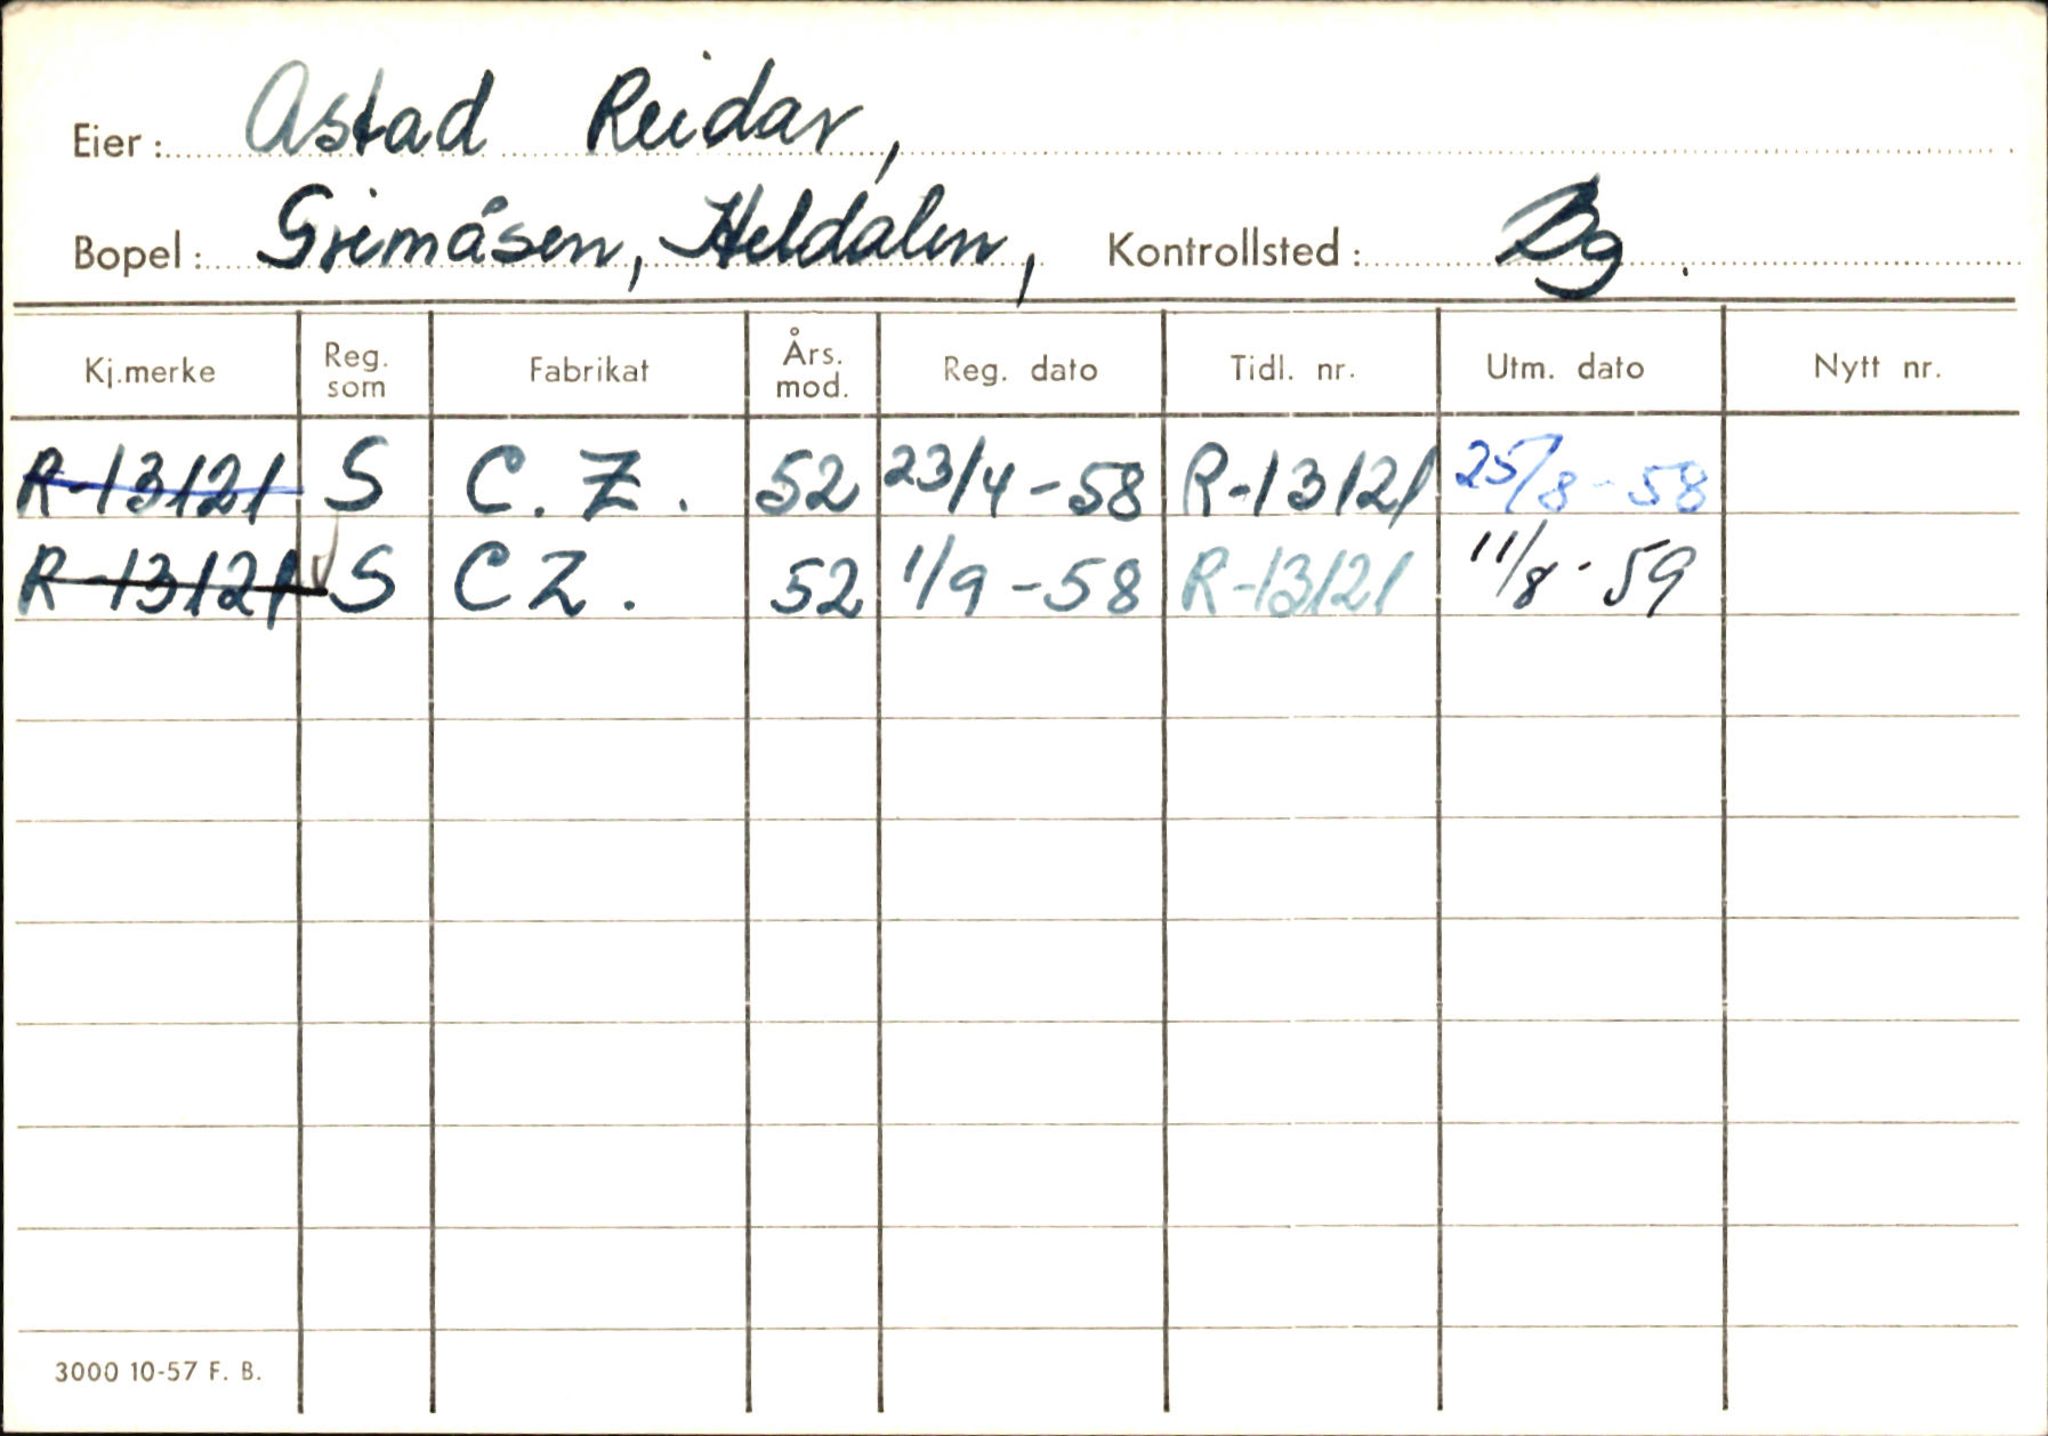 Eier: Astad Reidar,
Bopel: Grimåsen, Heldalen, Kontrollsted: Bg.
Kj.merke Reg. som Fabrikat Års. mod. Reg. dato Tidl. nr. Utm. dato Nytt nr.
R-13121 S C. Z. 52 23/4-58 R-13121 25/8-58
R-13121 S CZ. 52 1/9-58 R-13121 11/8-59
3000 10-57 F. B.